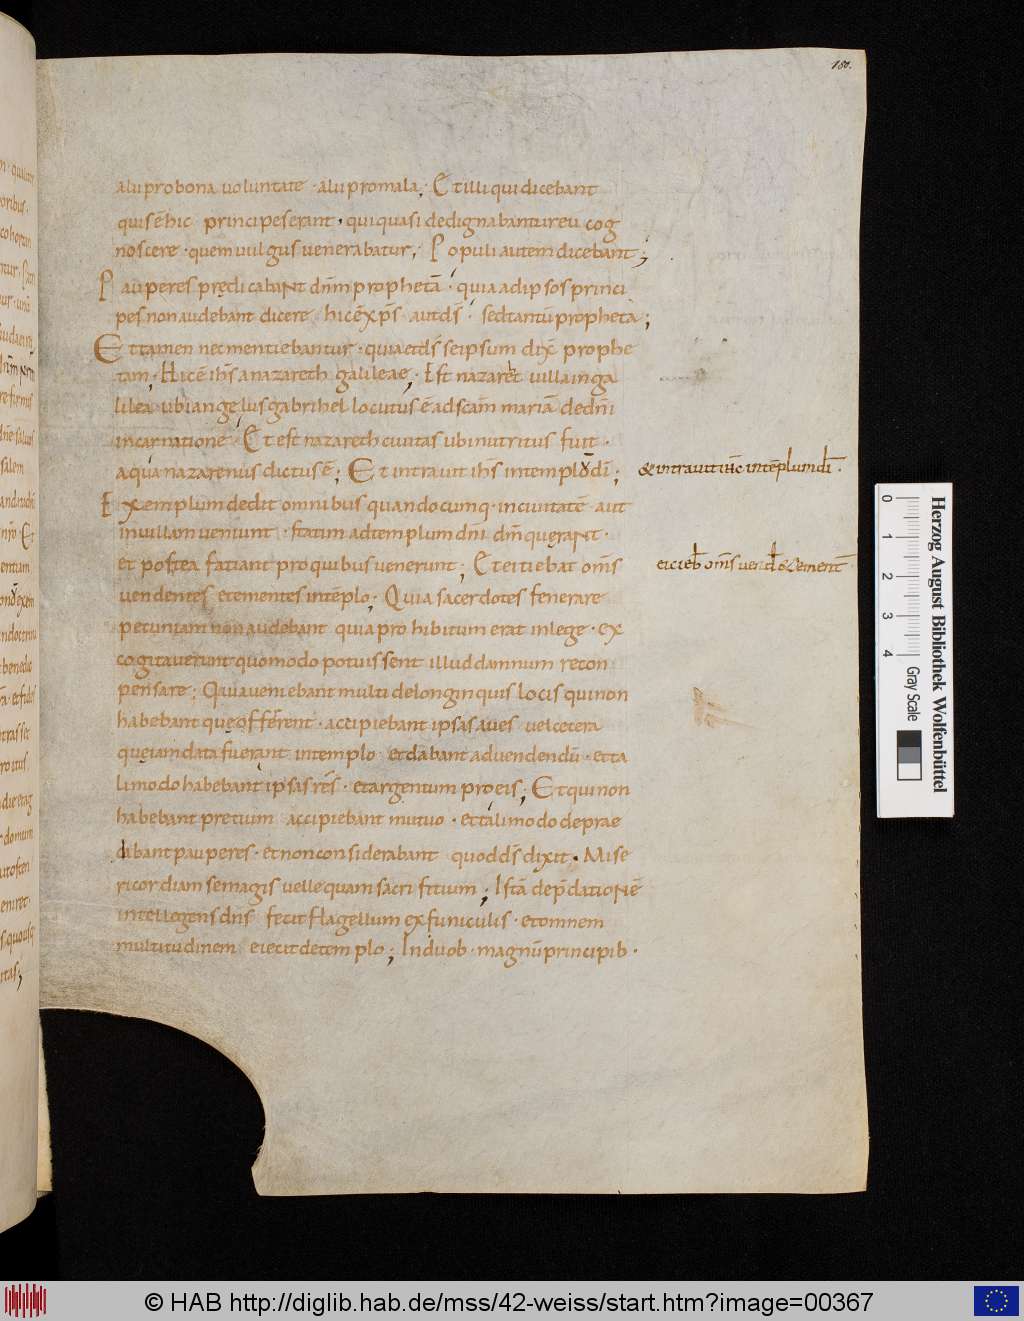 180.
alii pro bona voluntate · alii pro mala; Et illi qui dicebant
quis ē hic principes erant · qui quasi dedignabantur eu cog
noscere · quem vulgus venerabatur; Populi autem dicebant;
Pauperes prędicabant dn̄m prophetā · quia ad ipsos princi
pes non audebant dicere hic ē xp̄s aut ds̄ · sed tantū propheta;
Et tamen nec mentiebantur · quia et ds̄ seipsum dix̄ prophe
tam; Hic ē ih̄s a nazareth galileae; Est nazareth villa in ga
lilea ubi angelus gabrihel locutus ē ad scām mariā de dn̄i
incarnatione Et est nazareth civitas ubi nutritus fuit ·
a qua nazarenus dictus ē; Et intravit ih̄s in templū dī;
& intravit ih̄c in tēplum dī·
Exemplum dedit omnibus quando cumq· in civitatē aut
in villam veniunt · statim ad templum dn̄i dn̄m quęrant ·
et postea faciant pro quibus venerunt; Et eiciebat om̄s
eicieb om̄s vend & ement̄
vendentes et ementes in tēplo; Quia sacerdotes fenerare
pecuniam non audebant quia prohibitum erat in lege · ex
cogitaverunt quomodo potuissent illud damnum recon
pensare; Quia veniebant multi de longinquis locis qui non
habebant quę offerrent · accipiebant ipsas aves vel cetera
quę iam data fuerant in templo et dabant ad vendendū · et ta
li modo habebant ipsas rēs · et argentum pro eis; Et qui non
habebant pretium accipiebant mutuo · et tali modo deprae
dabant pauperes · et non considerabant quod ds̄ dixit · Mise
ricordiam se magis velle quam sacrificium; Istā dep̄dationē
intellegens dn̄s fecit flagellum ex funiculis · et omnem
multitudinem eiecit de templo; In duob· magnū principib·
Herzog August Bibliothek Wolfenbüttel
0 1 2 3 4
Gray Scale
© HAB http://diglib.hab.de/mss/42-weiss/start.htm?image=00367